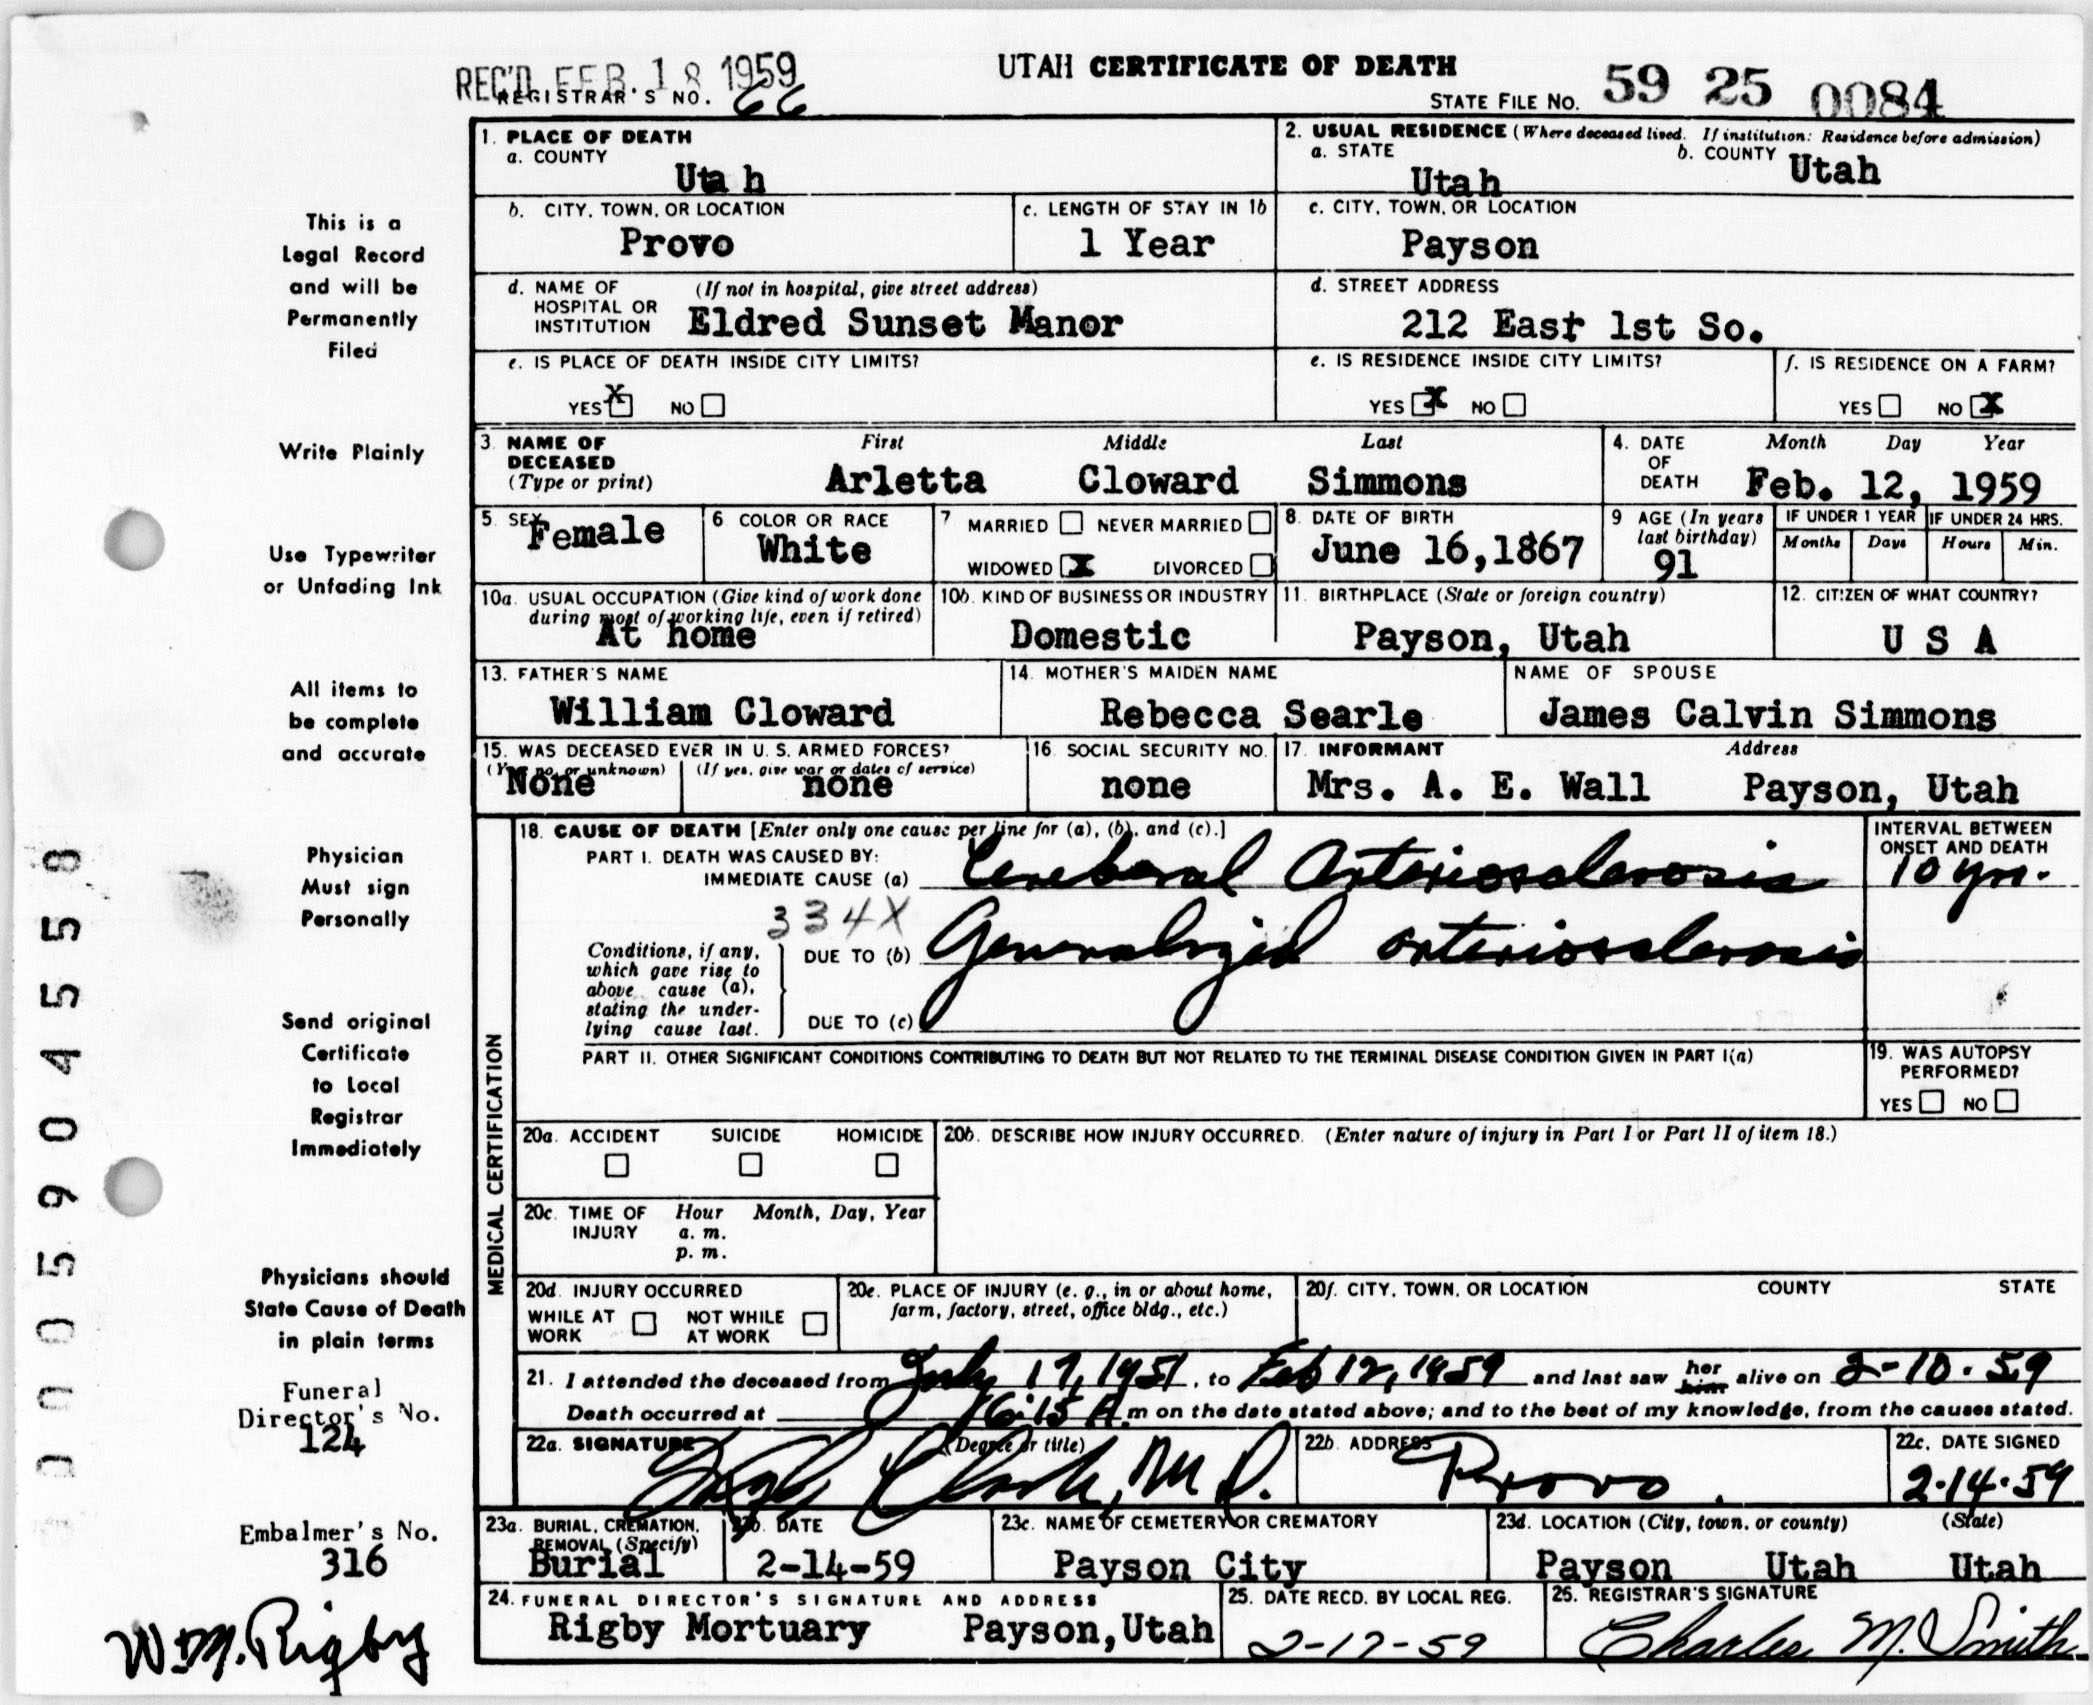 REC'D FEB. 18 1959
UTAH CERTIFICATE OF DEATH
REGISTRAR'S NO. 66
STATE FILE NO. 59 25 0084
This is a
Legal Record
and will be
Permanently
Filed
Write Plainly
Use Typewriter
or Unfading Ink
All items to
be complete
and accurate
Physician
Must sign
Personally
Send original
Certificate
to Local
Registrar
Immediately
Physicians should
State Cause of Death
in plain terms
Funeral
Director's No.
124
Embalmer's No.
316
W.M. Rigby
1. PLACE OF DEATH
a. COUNTY
Utah
2. USUAL RESIDENCE (Where deceased lived. If institution: Residence before admission)
a. STATE
Utah
b. COUNTY
Utah
b. CITY, TOWN, OR LOCATION
Provo
c. LENGTH OF STAY IN 1b
1 Year
c. CITY, TOWN, OR LOCATION
Payson
d. NAME OF HOSPITAL OR INSTITUTION (If not in hospital, give street address)
Eldred Sunset Manor
d. STREET ADDRESS
212 East 1st So.
e. IS PLACE OF DEATH INSIDE CITY LIMITS?
YES X NO
e. IS RESIDENCE INSIDE CITY LIMITS?
YES X NO
f. IS RESIDENCE ON A FARM?
YES NO X
3. NAME OF DECEASED (Type or print)
First Middle Last
Arletta Cloward Simmons
4. DATE OF DEATH
Month Day Year
Feb. 12, 1959
5. SEX
Female
6 COLOR OR RACE
White
7 MARRIED NEVER MARRIED
WIDOWED X DIVORCED
8. DATE OF BIRTH
June 16,1867
9 AGE (In years last birthday)
91
IF UNDER 1 YEAR
Months Days
IF UNDER 24 HRS.
Hours Min.
10a. USUAL OCCUPATION (Give kind of work done during most of working life, even if retired)
At home
10b. KIND OF BUSINESS OR INDUSTRY
Domestic
11. BIRTHPLACE (State or foreign country)
Payson, Utah
12. CITIZEN OF WHAT COUNTRY?
U S A
13. FATHER'S NAME
William Cloward
14. MOTHER'S MAIDEN NAME
Rebecca Searle
NAME OF SPOUSE
James Calvin Simmons
15. WAS DECEASED EVER IN U. S. ARMED FORCES?
(Yes, no, or unknown) (If yes, give war or dates of service)
None none
16. SOCIAL SECURITY NO.
none
17. INFORMANT Address
Mrs. A. E. Wall Payson, Utah
MEDICAL CERTIFICATION
18. CAUSE OF DEATH [Enter only one cause per line for (a), (b), and (c).]
PART I. DEATH WAS CAUSED BY:
IMMEDIATE CAUSE (a) Cerebral Arteriosclerosis
INTERVAL BETWEEN ONSET AND DEATH
10 yrs.
334X
Conditions, if any, which gave rise to above cause (a), stating the underlying cause last.
DUE TO (b) Generalized arteriosclerosis
DUE TO (c)
PART II. OTHER SIGNIFICANT CONDITIONS CONTRIBUTING TO DEATH BUT NOT RELATED TO THE TERMINAL DISEASE CONDITION GIVEN IN PART I(a)
19. WAS AUTOPSY PERFORMED?
YES NO
20a. ACCIDENT SUICIDE HOMICIDE
20b. DESCRIBE HOW INJURY OCCURRED. (Enter nature of injury in Part I or Part II of item 18.)
20c. TIME OF INJURY Hour Month, Day, Year
a. m.
p. m.
20d. INJURY OCCURRED
WHILE AT WORK NOT WHILE AT WORK
20e. PLACE OF INJURY (e. g., in or about home, farm, factory, street, office bldg., etc.)
20f. CITY, TOWN, OR LOCATION COUNTY STATE
21. I attended the deceased from July 17, 1951, to Feb 12, 1959 and last saw her him alive on 2-10-59
Death occurred at 6:15 A.m on the date stated above; and to the best of my knowledge, from the causes stated.
22a. SIGNATURE (Degree or title)
Clark, M.D.
22b. ADDRESS
Provo.
22c. DATE SIGNED
2-14-59
23a. BURIAL, CREMATION, REMOVAL (Specify)
Burial
23b. DATE
2-14-59
23c. NAME OF CEMETERY OR CREMATORY
Payson City
23d. LOCATION (City, town, or county) (State)
Payson Utah Utah
24. FUNERAL DIRECTOR'S SIGNATURE AND ADDRESS
Rigby Mortuary Payson,Utah
25. DATE RECD. BY LOCAL REG.
2-17-59
25. REGISTRAR'S SIGNATURE
Charles M. Smith
00059045558